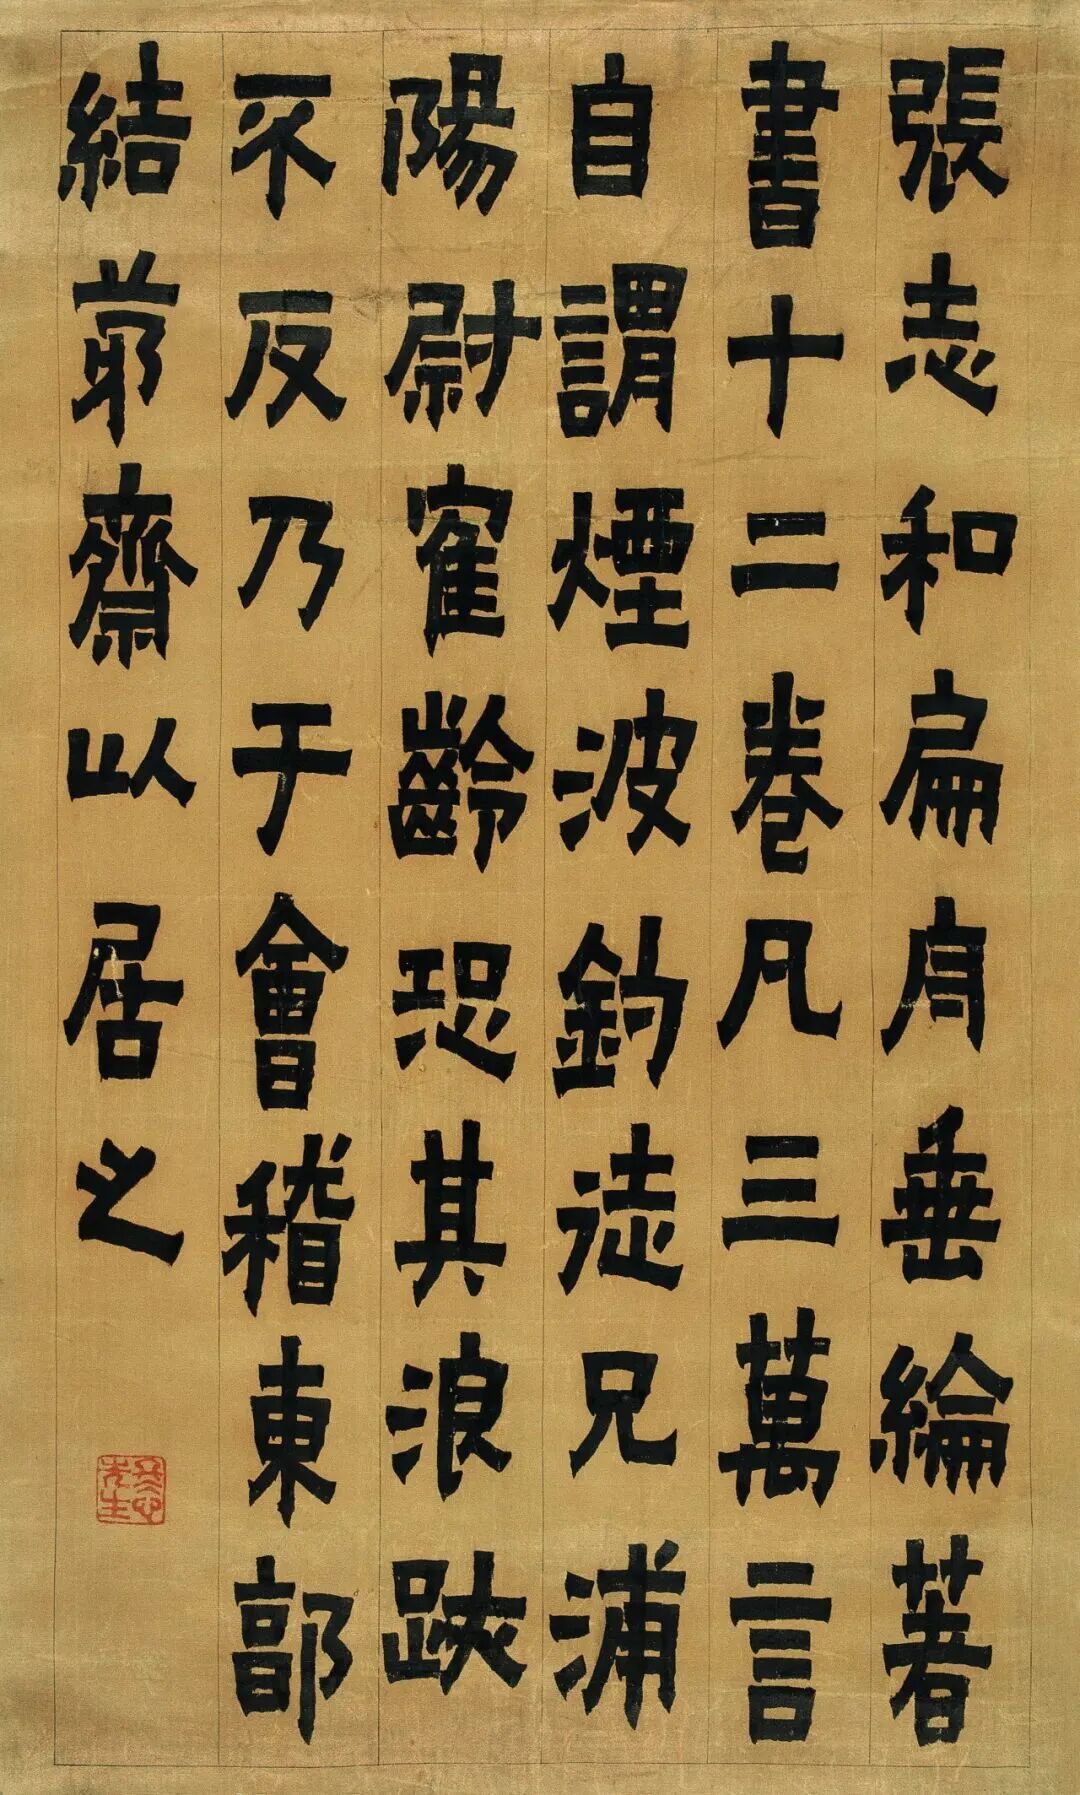 張志和扁舟垂綸著
書十二卷凡三萬言
自謂煙波釣徒兄浦
陽尉寉齡恐其浪跡
不反乃于會稽東郭
結茅齋以居之
冬心先生